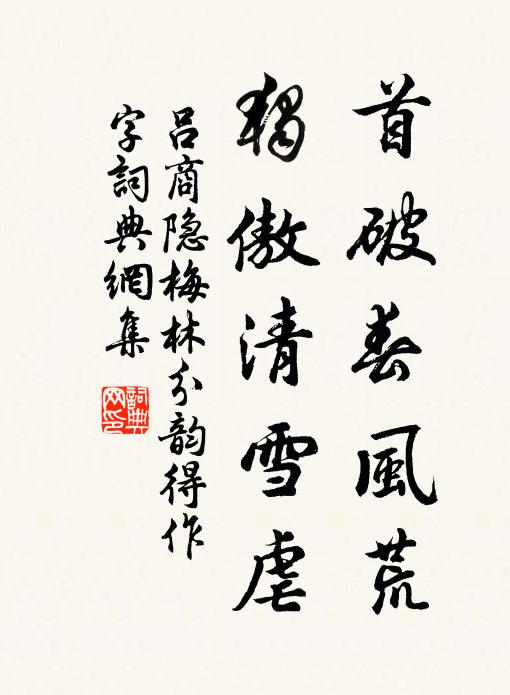 首破春風荒
獨傲清雪虐
吕商隐梅林分韵得作
字詞典網集
詞典網印